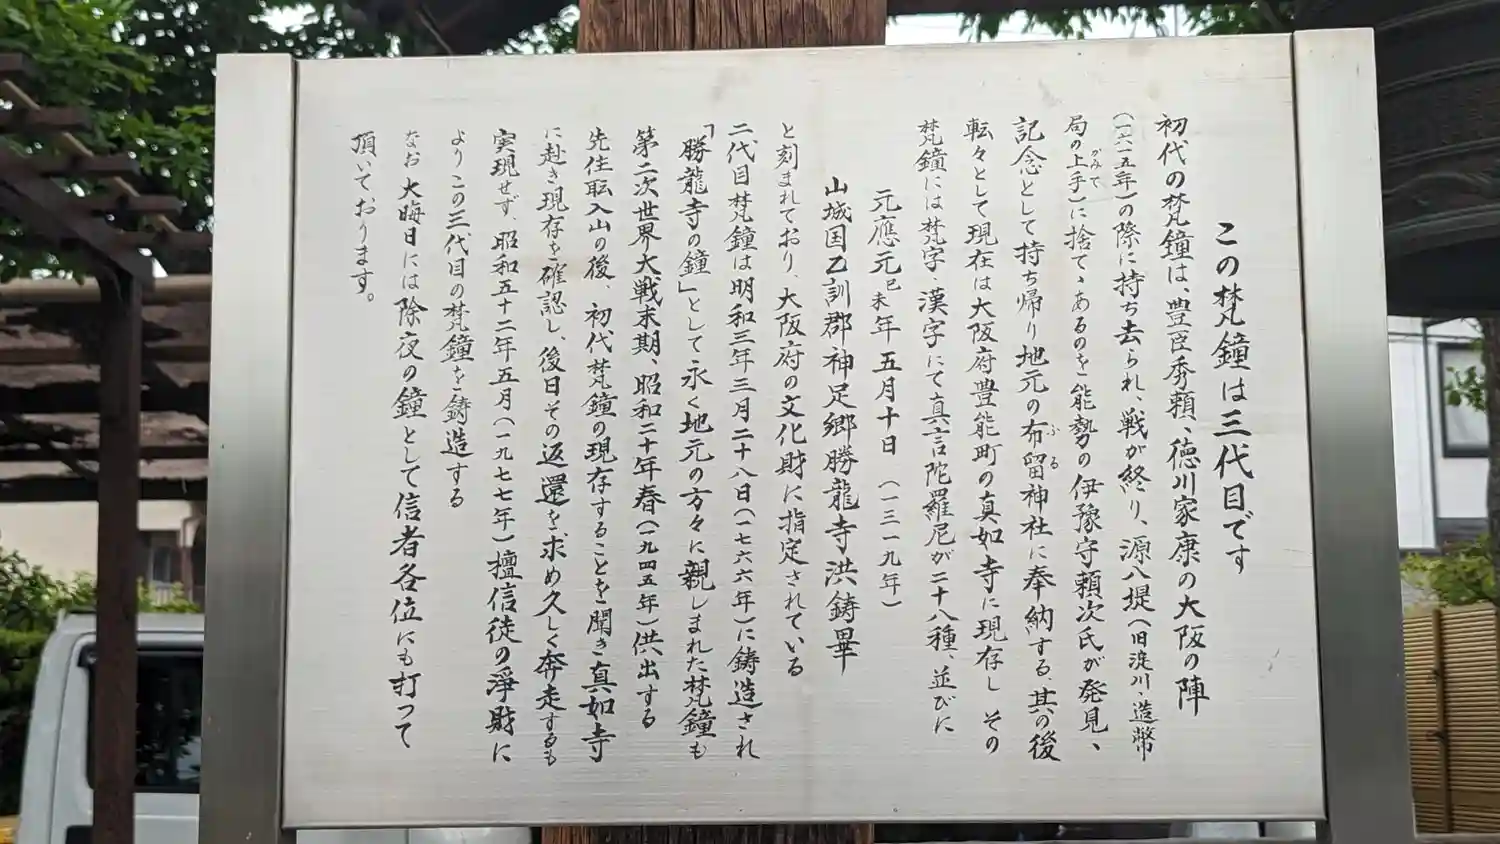 この梵鐘は三代目です
初代の梵鐘は、豊臣秀頼、徳川家康の大阪の陣
(一六一五年)の際に持ち去られ、戦が終り、源八堤(旧淀川・造幣
局の上手)に捨てゝあるのを能勢の伊豫守頼次氏が発見、
記念として持ち帰り地元の布留神社に奉納する。其の後
転々として現在は大阪府豊能町の真如寺に現存し その
梵鐘には梵字・漢字にて真言陀羅尼が二十八種、並びに
元應元己未年 五月十日 (一三一九年)
山城国乙訓郡神足郷勝龍寺洪鋳畢
と刻まれており、大阪府の文化財に指定されている
二代目梵鐘は明和三年三月二十八日(一七六六年)に鋳造され
「勝龍寺の鐘」として永く地元の方々に親しまれた梵鐘も
第二次世界大戦末期、昭和二十年春(一九四五年)供出する
先住耘入山の後、初代梵鐘の現存することを聞き真如寺
に赴き現存を確認し、後日その返還を求め久しく奔走するも
実現せず、昭和五十二年五月(一九七七年)檀信徒の淨財に
よりこの三代目の梵鐘を鋳造する
なお 大晦日には除夜の鐘として信者各位にも打って
頂いております。